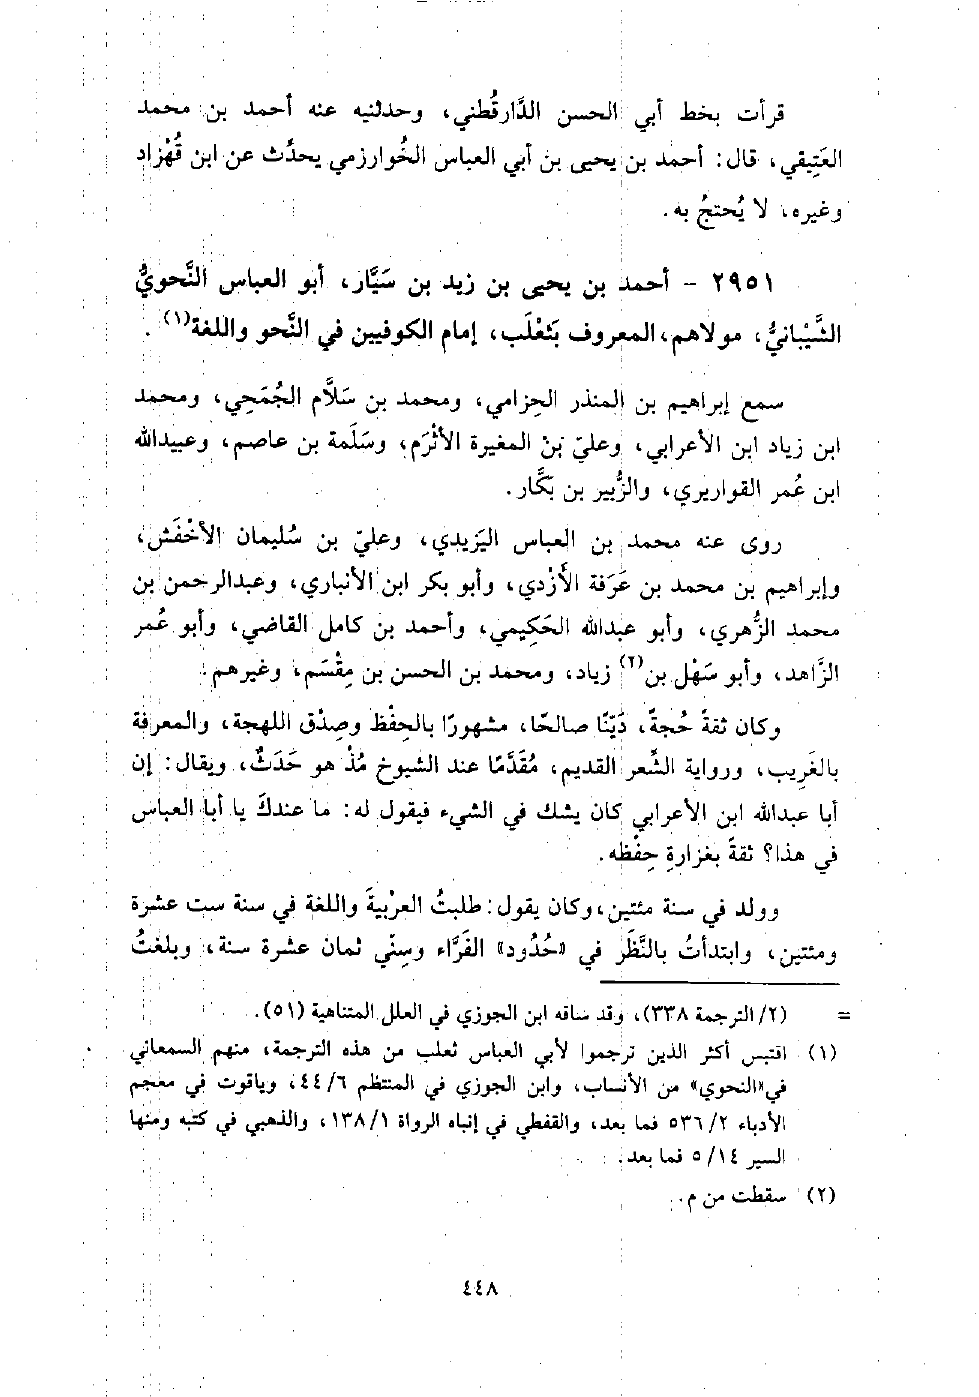 قرأت بخط أبي الحسن الدَّارقُطني، وحدثنيه عنه أحمد بن محمد
العَتِيقي، قال: أحمد بن يحيى بن أبي العباس الخُوارزمي يحدِّث عن ابن قُهْزاد
وغيره، لا يُحتجُّ به.
٢٩٥١ - أحمد بن يحيى بن زيد بن سَيَّار، أبو العباس النَّحويُّ
الشَّيْبانيُّ، مولاهم، المعروف بثَعْلَب، إمام الكوفيين في النَّحو واللغة(١).
سمع إبراهيم بن المنذر الحِزامي، ومحمد بن سَلَّام الجُمَحِي، ومحمد
ابن زياد ابن الأعرابي، وعليّ بنْ المغيرة الأثْرَم، وسَلَمة بن عاصم، وعبيدالله
ابن عُمر القواريري، والزُّبير بن بَكَّار.
روى عنه محمد بن العباس اليَزيدي، وعليّ بن سُليمان الأخْفَش،
وإبراهيم بن محمد بن عَرَفة الأَزْدي، وأبو بكر ابن الأنباري، وعبدالرحمن بن
محمد الزُّهري، وأبو عبدالله الحَكِيمي، وأحمد بن كامل القاضي، وأبو عُمر
الزَّاهد، وأبو سَهْل بن(٢) زياد، ومحمد بن الحسن بن مِقْسَم، وغيرهم.
وكان ثقةً حُجةً، دَيِّنًا صالحًا، مشهورًا بالحِفْظ وصِدْق اللهجة، والمعرفة
بالغَرِيب، ورواية الشِّعر القديم، مُقَدَّمًا عند الشيوخ مُذْ هو حَدَثٌ، ويقال: إن
أبا عبدالله ابن الأعرابي كان يشك في الشيء فيقول له: ما عندكَ يا أبا العباس
في هذا؟ ثقةً بغزارةِ حِفْظه.
وولد في سنة مئتين، وكان يقول: طلبتُ العربيةَ واللغة في سنة ست عشرة
ومئتين، وابتدأتُ بالنَّظَر في «حُدُود» الفَرَّاء وسِنِّي ثمان عشرة سنة، وبلغتُ
= (٢/ الترجمة ٣٣٨)، وقد ساقه ابن الجوزي في العلل المتناهية (٥١).
(١) اقتبس أكثر الذين ترجموا لأبي العباس ثعلب من هذه الترجمة، منهم السمعاني
في «النحوي» من الأنساب، وابن الجوزي في المنتظم ٦/ ٤٤، وياقوت في معجم
الأدباء ٢/ ٥٣٦ فما بعد، والقفطي في إنباه الرواة ١/ ١٣٨، والذهبي في كتبه ومنها
السير ١٤/ ٥ فما بعد.
(٢) سقطت من م.
٤٤٨